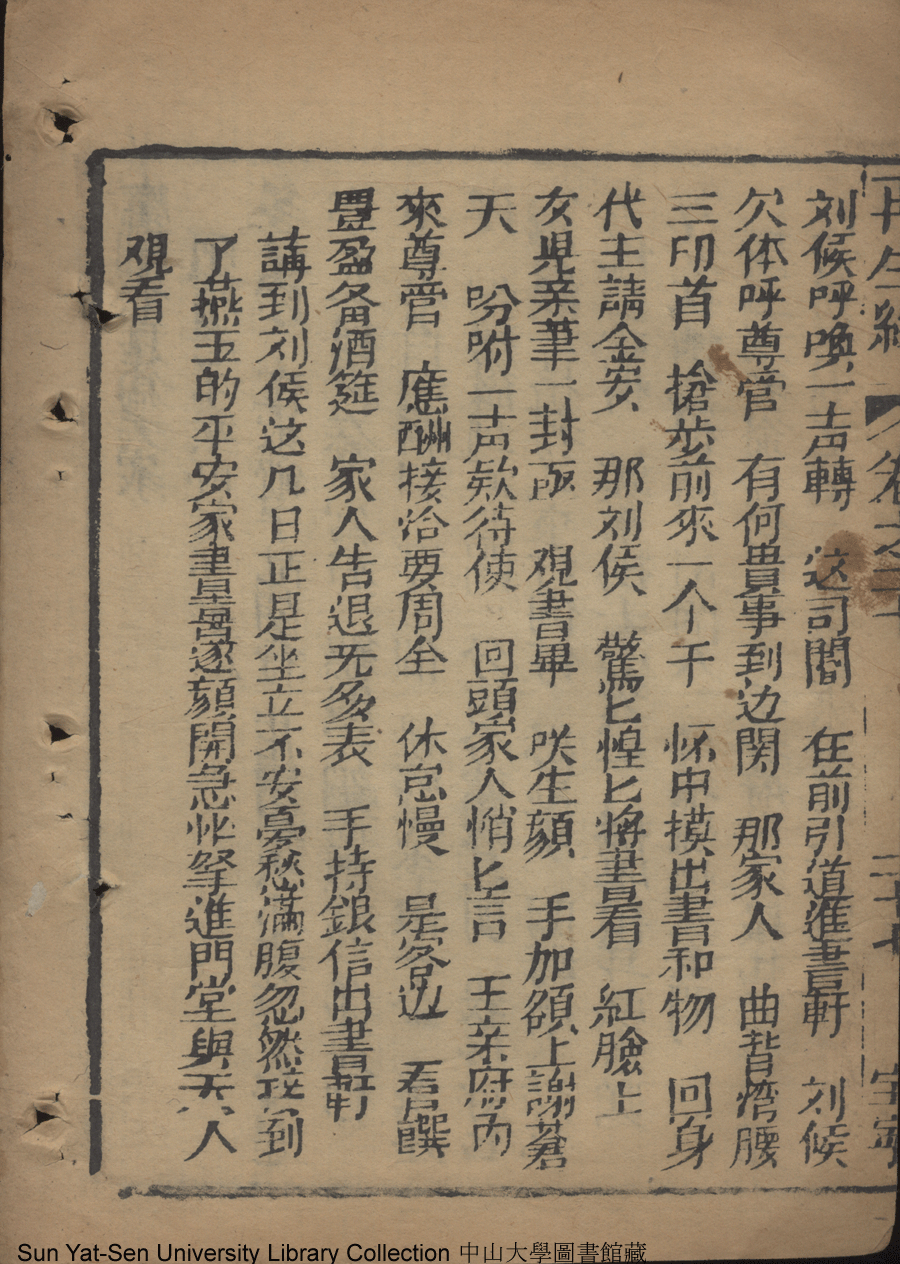 再生緣 卷之三十 二十七
刘候呼喚一声轉 这司閽 在前引道進書軒 刘候
欠体呼尊官 有何貴事到边関 那家人 曲背湾腰
三叩首 搶步前來一个千 怀中摸出書和物 回身
代主請金安 那刘侯 驚匕惶匕將書看 紅臉上
女児亲筆一封函 观書畢 咲生顔 手加額上謝蒼
天 吩咐一声欵待使 回頭家人悄匕言 王亲府内
來尊官 應酬接洽要周全 休怠慢 是客边 看饌
豊盈备酒筵 家人告退无多表 手持銀信出書軒
講到刘侯这几日正是坐立不安憂愁滿腹忽然接到
了燕玉的平安家書 遂顔開急忙拏進門堂與夫人
观看
Sun Yat-Sen University Library Collection 中山大學圖書館藏